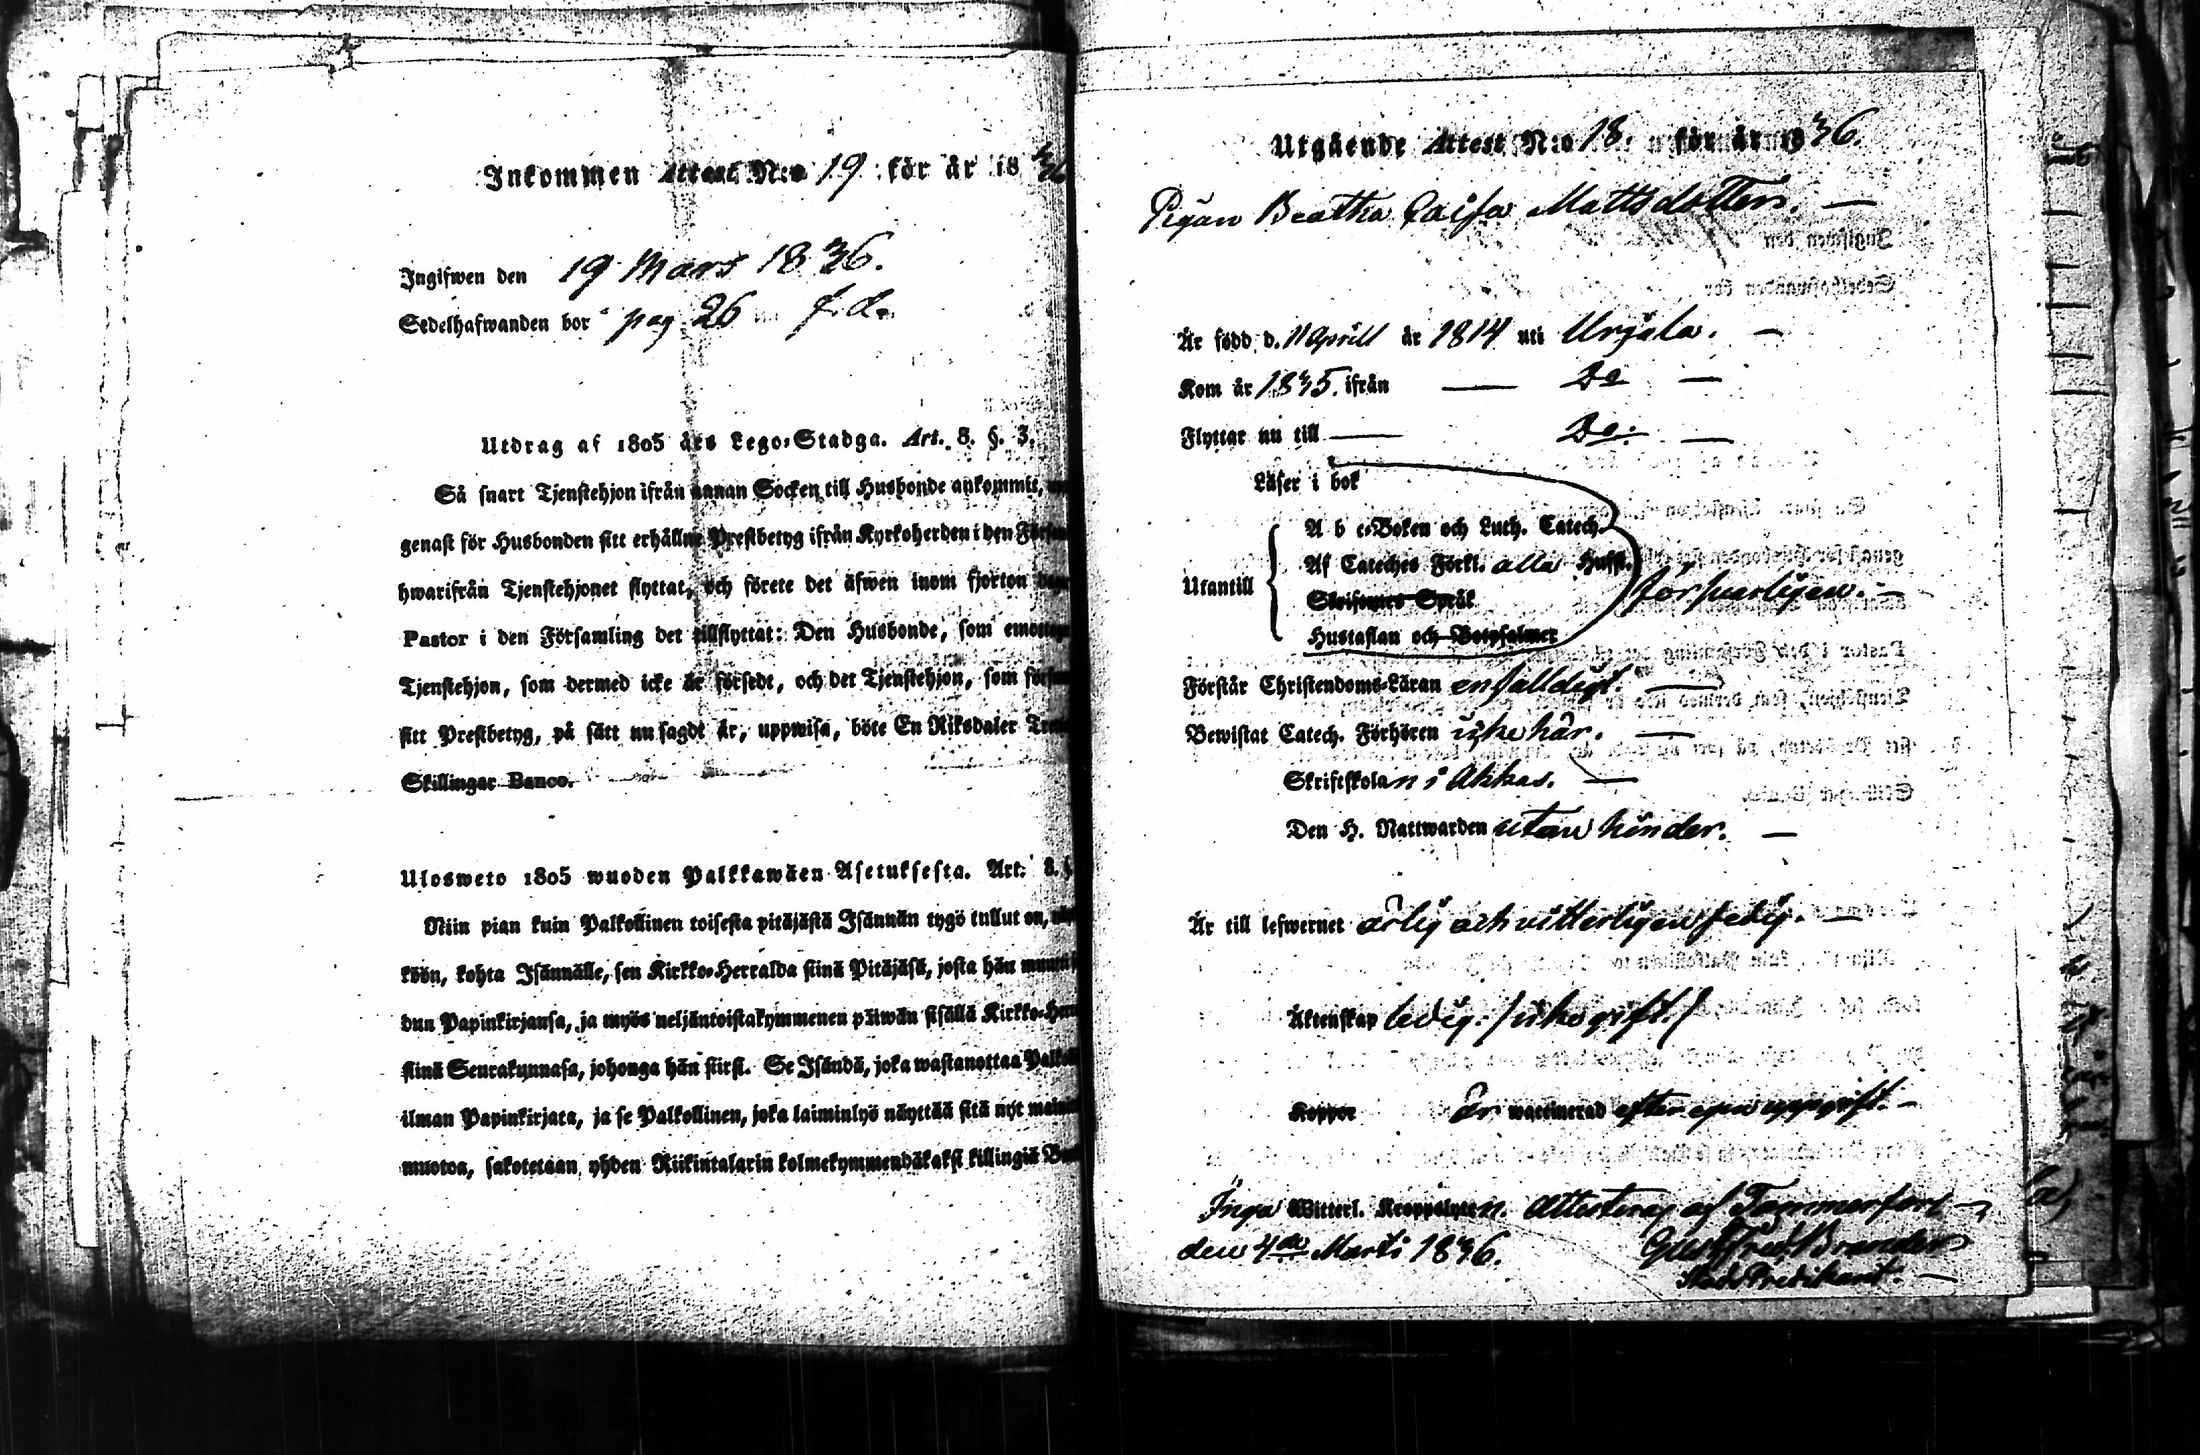 Inkommen Attest N:o 19 för år 1836
Ingifwen den 19 Mars 1836.
Sedelhafwanden bor pag 26 f. d.
Utdrag af 1805 års Lego-Stadga. Art. 8. §. 3.
Så snart Tjenstehjon ifrån annan Socken till Husbonde ankommit,
genast för Husbonden sitt erhållne Prestbetyg ifrån Kyrkoherden i den
hwarifrån Tjenstehjonet flyttat, och förete det äfwen inom fjorton
Pastor i den Församling det tillflyttat: Den Husbonde, som
Tjenstehjon, som dermed icke är försedt, och det Tjenstehjon, som
sitt Prestbetyg, på sätt nu sagdt är, uppwisa, böte En Riksdaler
Skillingar Banco.
Ulosweto 1805 wuoden Palkkawäen Asetuksesta. Art: 8.
Niin pian kuin Palkollinen toisesta pitäjästä Isännän tygö tullut on,
köön, kohta Isännälle, sen Kirkko-Herralda siinä Pitäjäsä, josta hän
dun Papinkirjansa, ja myös neljäntoistakymmenen päiwän sisällä
siinä Seurakunnasa, johonga hän siirsi. Se Isändä, joka wastanottaa
ilman Papinkirjata, ja se Palkollinen, joka laiminlyö näyttää sitä nyt
muotoa, sakotetaan yhden Riikintalarin kolmekymmendäkaksi killingiä
Utgående Attest N:o 18. för år 1836.
Pigan Beatha Caisa Mattsdotter. —
Är född d. 11 Aprill år 1814 uti Urjala. —
Kom år 1835. ifrån — Do —
Flyttar nu till — Do: —
Läser i bok
A b c-Boken och Luth. Catech.
Af Cateches Förkl. alla Hufst.
Utantill försvarligen. —
Skriftenes Språk
Hustaflan och Botpsalmer
Förstår Christendoms-Läran enfalldigt. —
Bewistat Catech. Förhören icke här. —
Skriftskolan i Akkas. —
Den H. Nattwarden utan hinder. —
Är till lefwernet ärlig och vitterligen ledig. —
Äktenskap ledig. /icke gift./
Koppor Är waccinerad efter egen uppgift. —
Inga Witterl. Kroppslyten. Attesterar af Tammerfors —
den 4de Marti 1836. Gust. Fred. Brander
Stads Predikant. —